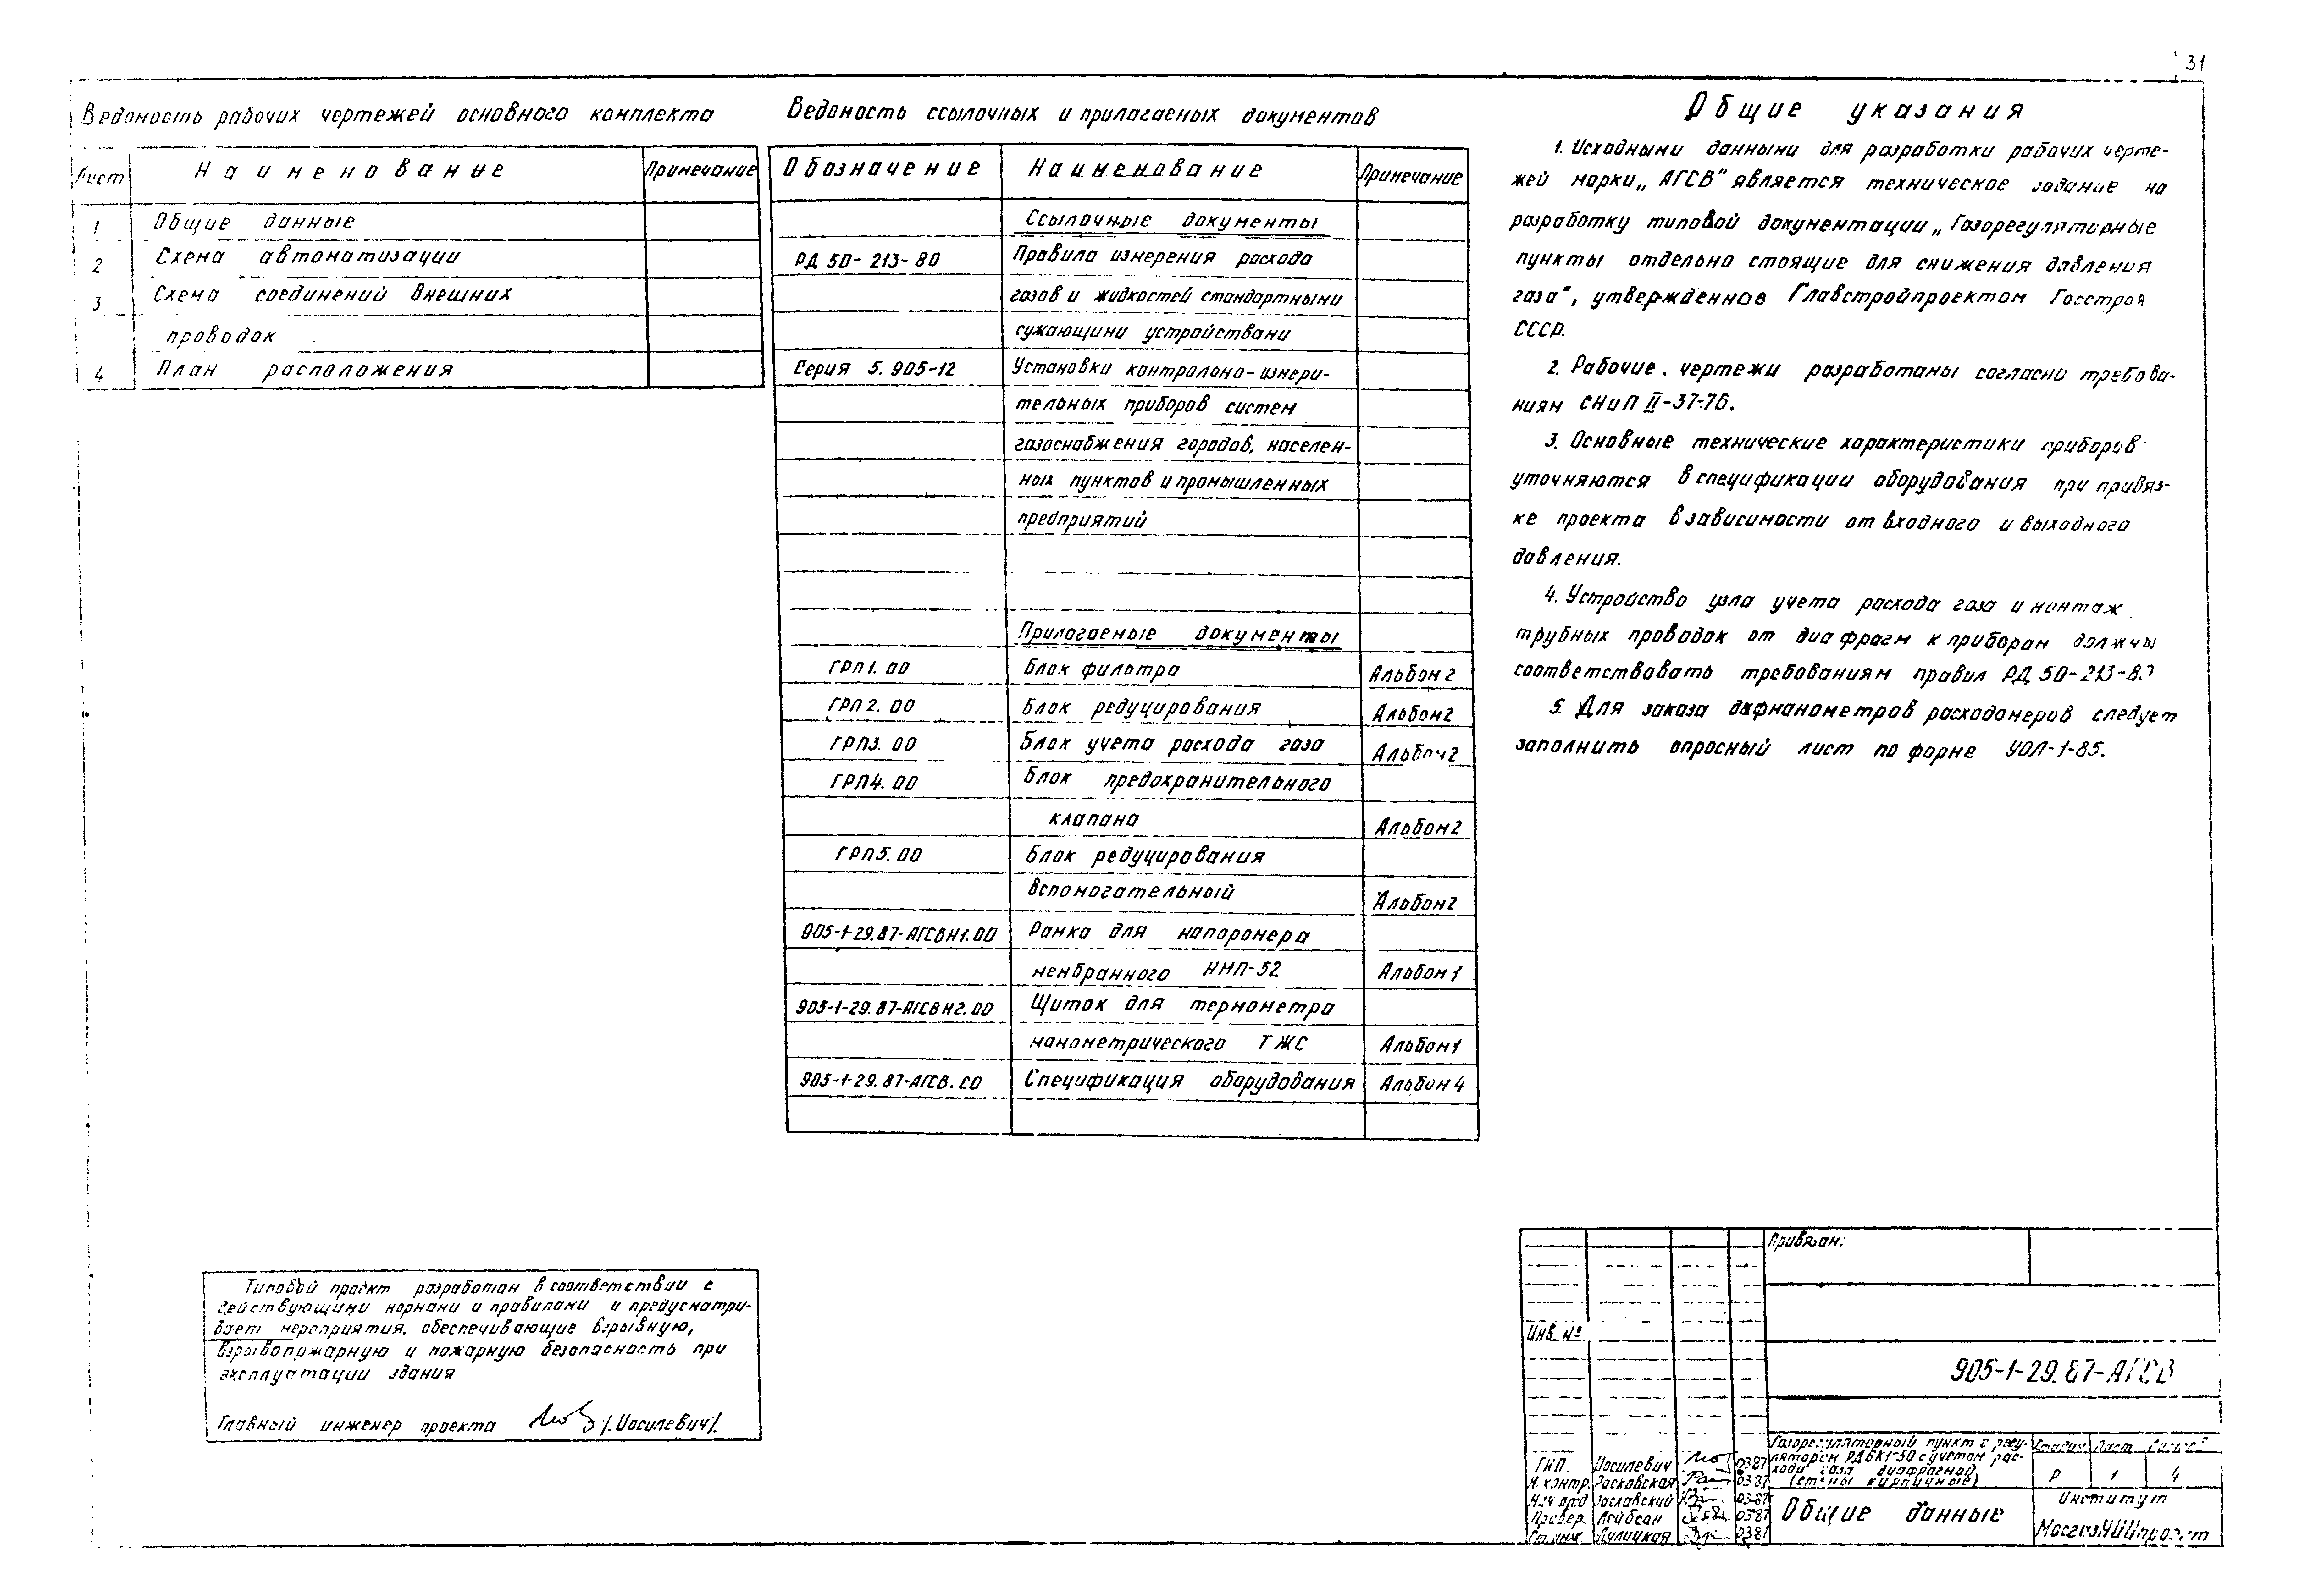 31
Ведомость рабочих чертежей основного комплекта
Лист Наименование Примечание
1 Общие данные
2 Схема автоматизации
3 Схема соединений внешних
проводок
4 План расположения
Ведомость ссылочных и прилагаемых документов
Обозначение Наименование Примечание
Ссылочные документы
РД 50-213-80 Правила измерения расхода
газов и жидкостей стандартными
сужающими устройствами
Серия 5.905-12 Установки контрольно-измери-
тельных приборов систем
газоснабжения городов, населен-
ных пунктов и промышленных
предприятий
Прилагаемые документы
ГРП1.00 Блок фильтра Альбом 2
ГРП2.00 Блок редуцирования Альбом 2
ГРП3.00 Блок учета расхода газа Альбом 2
ГРП4.00 Блок предохранительного
клапана Альбом 2
ГРП5.00 Блок редуцирования
вспомогательный Альбом 2
905-1-29.87-АГСВН1.00 Рамка для напоромера
мембранного НМП-52 Альбом 1
905-1-29.87-АГСВН2.00 Щиток для термометра
манометрического ТЖС Альбом 1
905-1-29.87-АГСВ.СО Спецификация оборудования Альбом 4
Общие указания
1. Исходными данными для разработки рабочих черте-
жей марки „АГСВ" является техническое задание на
разработку типовой документации „Газорегуляторные
пункты отдельно стоящие для снижения давления
газа", утвержденное Главстройпроектом Госстроя
СССР.
2. Рабочие чертежи разработаны согласно требова-
ниям СНиП II-37-76.
3. Основные технические характеристики приборов
уточняются в спецификации оборудования при привяз-
ке проекта в зависимости от входного и выходного
давления.
4. Устройство узла учета расхода газа и монтаж
трубных проводок от диафрагм к приборам должны
соответствовать требованиям правил РД 50-213-80
5. Для заказа дифманометров расходомеров следует
заполнить опросный лист по форме УОЛ-1-85.
Типовой проект разработан в соответствии с
действующими нормами и правилами и предусматри-
вает мероприятия, обеспечивающие взрывную,
взрывопожарную и пожарную безопасность при
эксплуатации здания
Главный инженер проекта /Иосилевич/.
Привязан:
Инв. №
905-1-29.87-АГСВ
Газорегуляторный пункт с регу-
лятором РДБК1-50 с учетом рас-
хода газа диафрагмой
(стены кирпичные)
Стадия Лист Листов
Р 1 4
ГИП. Иосилевич 0387
Н. контр. Расковская 0387
Нач отд Заславский 0387
Провер. Лейбсан 0387
Ст. инж. Лулицкая 0387
Общие данные
Институт
МосгазНИИпроект